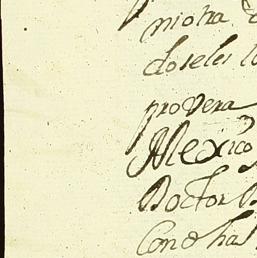 ni otra
doseles
provera
Mexico
Doctor
Concha